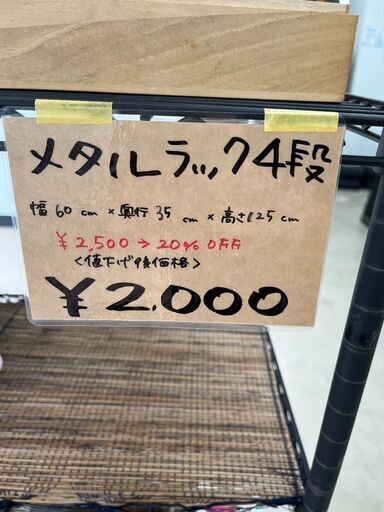 メタルラック4段
幅60cm×奥行35cm×高さ125cm
¥2,500→20% OFF
<値下げ後価格>
¥2,000